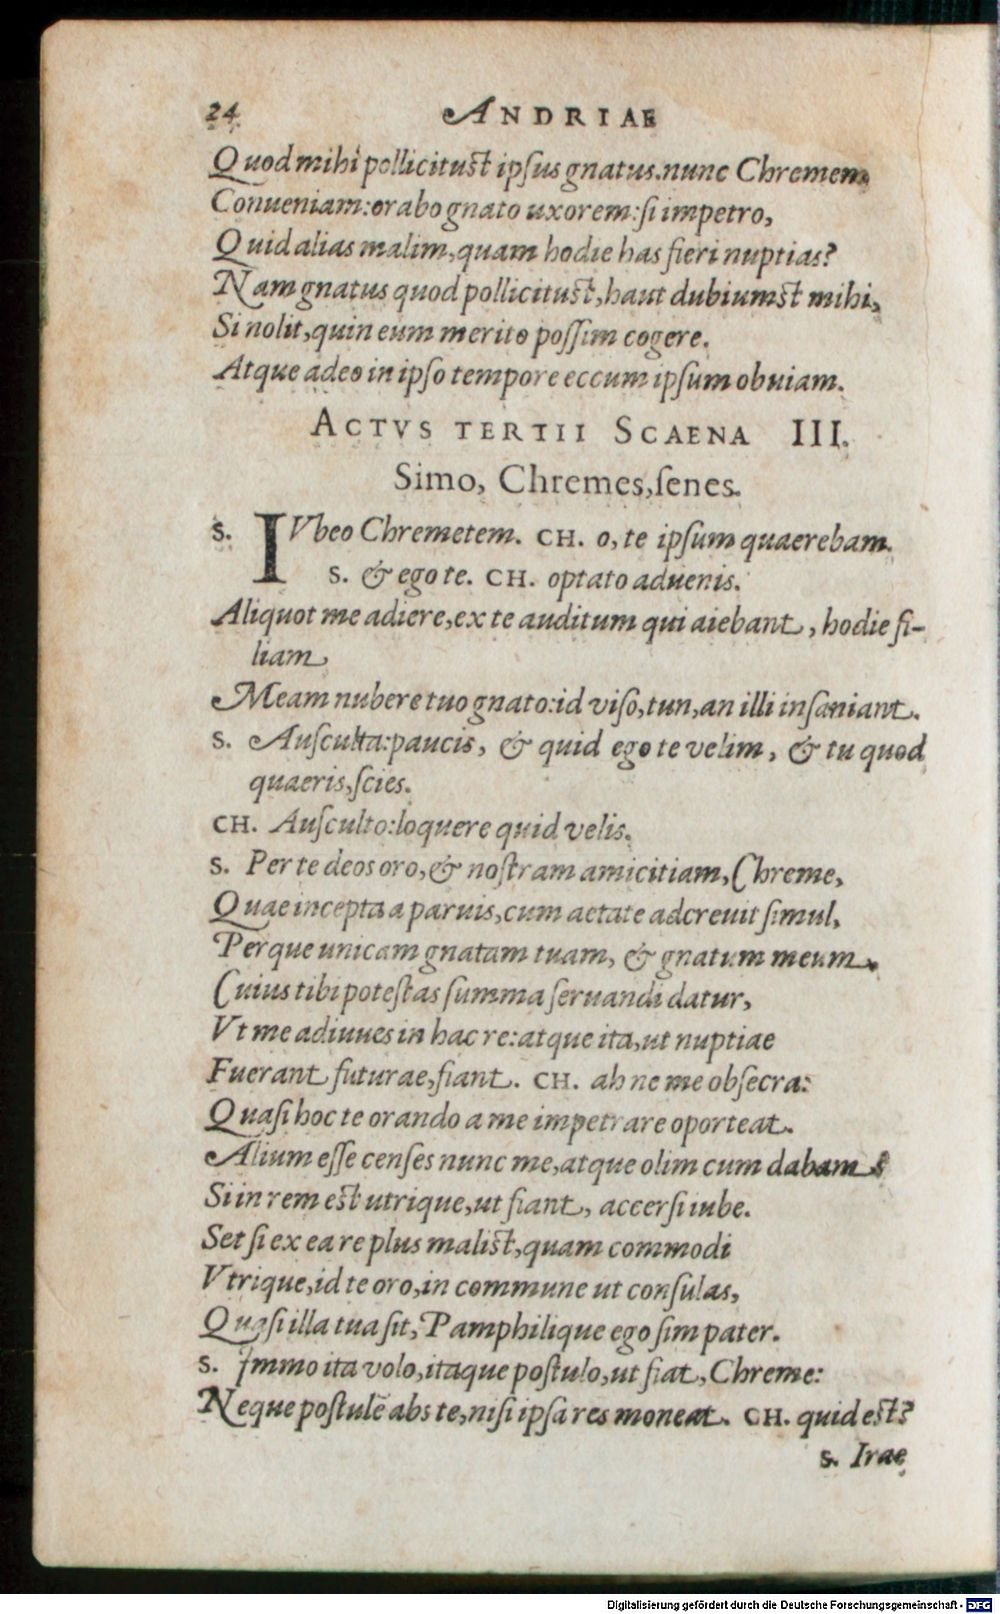 24 ANDRIAE
Quod mihi pollicitust ipsus gnatus. nunc Chremem
Conueniam: orabo gnato uxorem: si impetro,
Quid alias malim, quam hodie has fieri nuptias?
Nam gnatus quod pollicitust, haut dubiumst mihi,
Si nolit, quin eum merito possim cogere.
Atque adeo in ipso tempore eccum ipsum obuiam.
ACTVS TERTII SCAENA III.
Simo, Chremes, senes.
S. IVbeo Chremetem. CH. o, te ipsum quaerebam.
S. & ego te. CH. optato aduenis.
Aliquot me adiere, ex te auditum qui aiebant, hodie fi-
liam
Meam nubere tuo gnato: id viso, tun, an illi insaniant.
S. Ausculta: paucis, & quid ego te velim, & tu quod
quaeris, scies.
CH. Ausculto: loquere quid velis.
S. Per te deos oro, & nostram amicitiam, Chreme,
Quae incepta a paruis, cum aetate adcreuit simul,
Perque unicam gnatam tuam, & gnatum meum,
Cuius tibi potestas summa seruandi datur,
Vt me adiuues in hac re: atque ita, ut nuptiae
Fuerant futurae, fiant. CH. ah ne me obsecra:
Quasi hoc te orando a me impetrare oporteat.
Alium esse censes nunc me, atque olim cum dabam?
Si in rem est utrique, ut fiant, accersi iube.
Set si ex ea re plus malist, quam commodi
Vtrique, id te oro, in commune ut consulas,
Quasi illa tua sit, Pamphilique ego sim pater.
S. Immo ita volo, itaque postulo, ut fiat, Chreme:
Neque postulē abs te, nisi ipsa res moneat. CH. quid est?
S. Irae
Digitalisierung gefördert durch die Deutsche Forschungsgemeinschaft - DFG